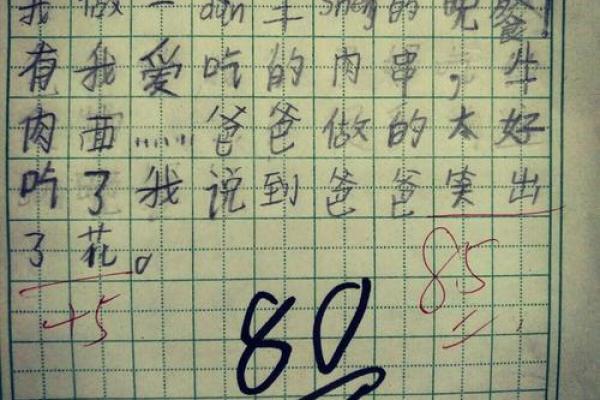 我做一dùn丰shèng的晚餐!
有我爱吃的肉串,牛
肉面……爸爸做的太好
吃了我说到爸爸実出
了花。
85
+5
80